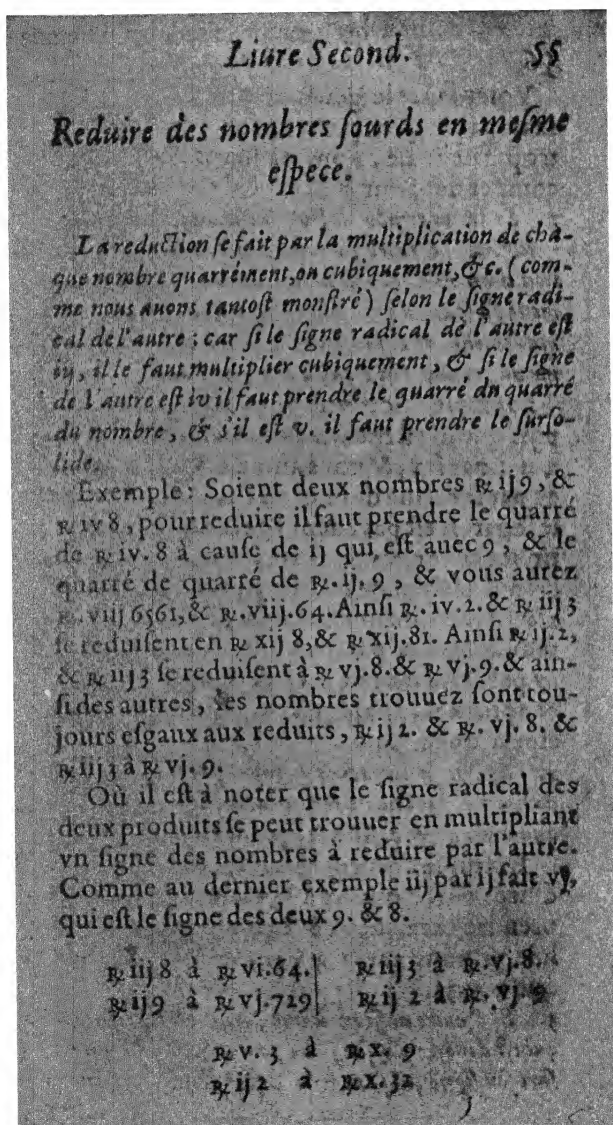 Liure Second. 55
Reduire des nombres ſourds en meſme
eſpece.
La reduction ſe fait par la multiplication de châ-
que nombre quarrément, ou cubiquement, &c. (com-
me nous auons tantoſt monſtré) ſelon le ſigne radi-
cal de l'autre ; car ſi le ſigne radical de l'autre eſt
iij, il le faut multiplier cubiquement, & ſi le ſigne
de l'autre eſt iv il faut prendre le quarré du quarré
du nombre, & s'il eſt v. il faut prendre le ſurſo-
lide.
Exemple : Soient deux nombres ℞ ij 9, &
℞ iv 8, pour reduire il faut prendre le quarré
de ℞ iv. 8 à cauſe de ij qui eſt auec 9, & le
quarré de quarré de ℞. ij. 9, & vous aurez
℞. viij 6561, & ℞. viij. 64. Ainſi ℞. iv. 2. & ℞ iij 3
ſe reduiſent en ℞ xij 8, & ℞ xij. 81. Ainſi ℞ ij. 2,
& ℞ iij 3 ſe reduiſent à ℞ vj. 8. & ℞ vj. 9. & ain-
ſi des autres, les nombres trouuez ſont tou-
jours eſgaux aux reduits, ℞ ij 2. & ℞. vj. 8. &
℞ iij 3 à ℞ vj. 9.
Où il eſt à noter que le ſigne radical des
deux produits ſe peut trouuer en multipliant
vn ſigne des nombres à reduire par l'autre.
Comme au dernier exemple iij par ij fait vj,
qui eſt le ſigne des deux 9. & 8.
℞ iij 8 à ℞ vi. 64. | ℞ iij 3 à ℞. vj. 8.
℞ ij 9 à ℞ vj. 729 | ℞ ij 2 à ℞. vj. 9
℞ v. 3 à ℞ x. 9
℞ ij 2 à ℞ x. 32